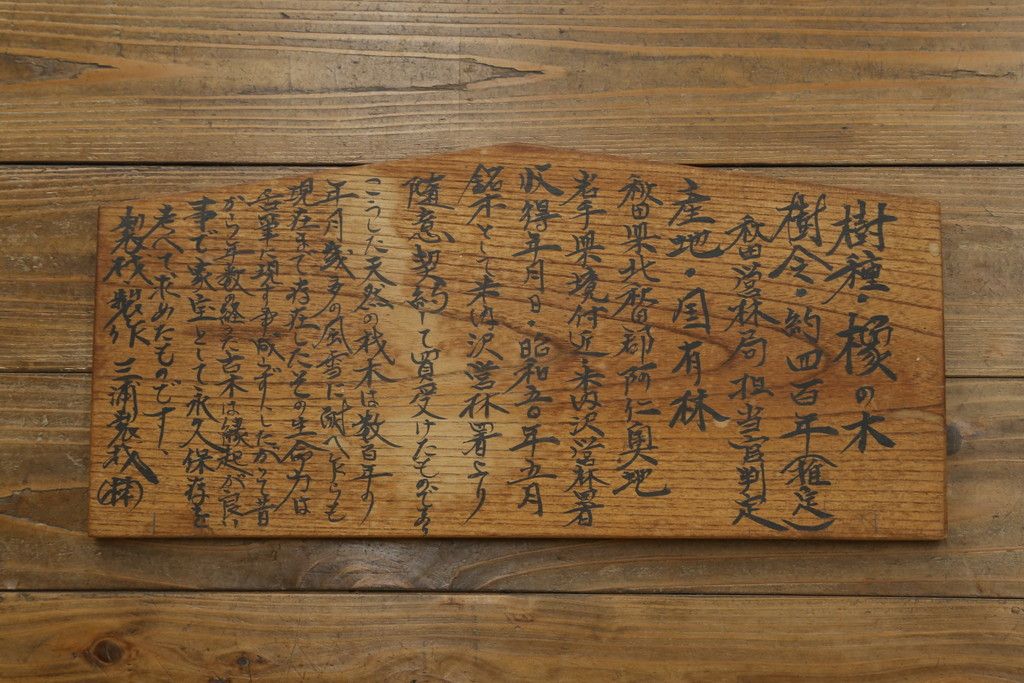 樹種・橡の木
樹令・約四百年(推定)
秋田営林局担当官判定
産地・国有林
秋田県北秋田郡阿仁奥地
岩手県境付近米内沢営林署
収得年月日・昭和五〇年五月
銘木として米内沢営林署より
随意契約して買受けたものである
こうした天然の銘木は数百年の
年月幾多の風雪に耐へながらも
現在まで存在したその生命力は
筆に現す事成らずしたがって昔
から年数の経た古木は縁起が良い
事で家宝として永久保存を
考へて求めたものです、
製材製作 三浦製材(株)